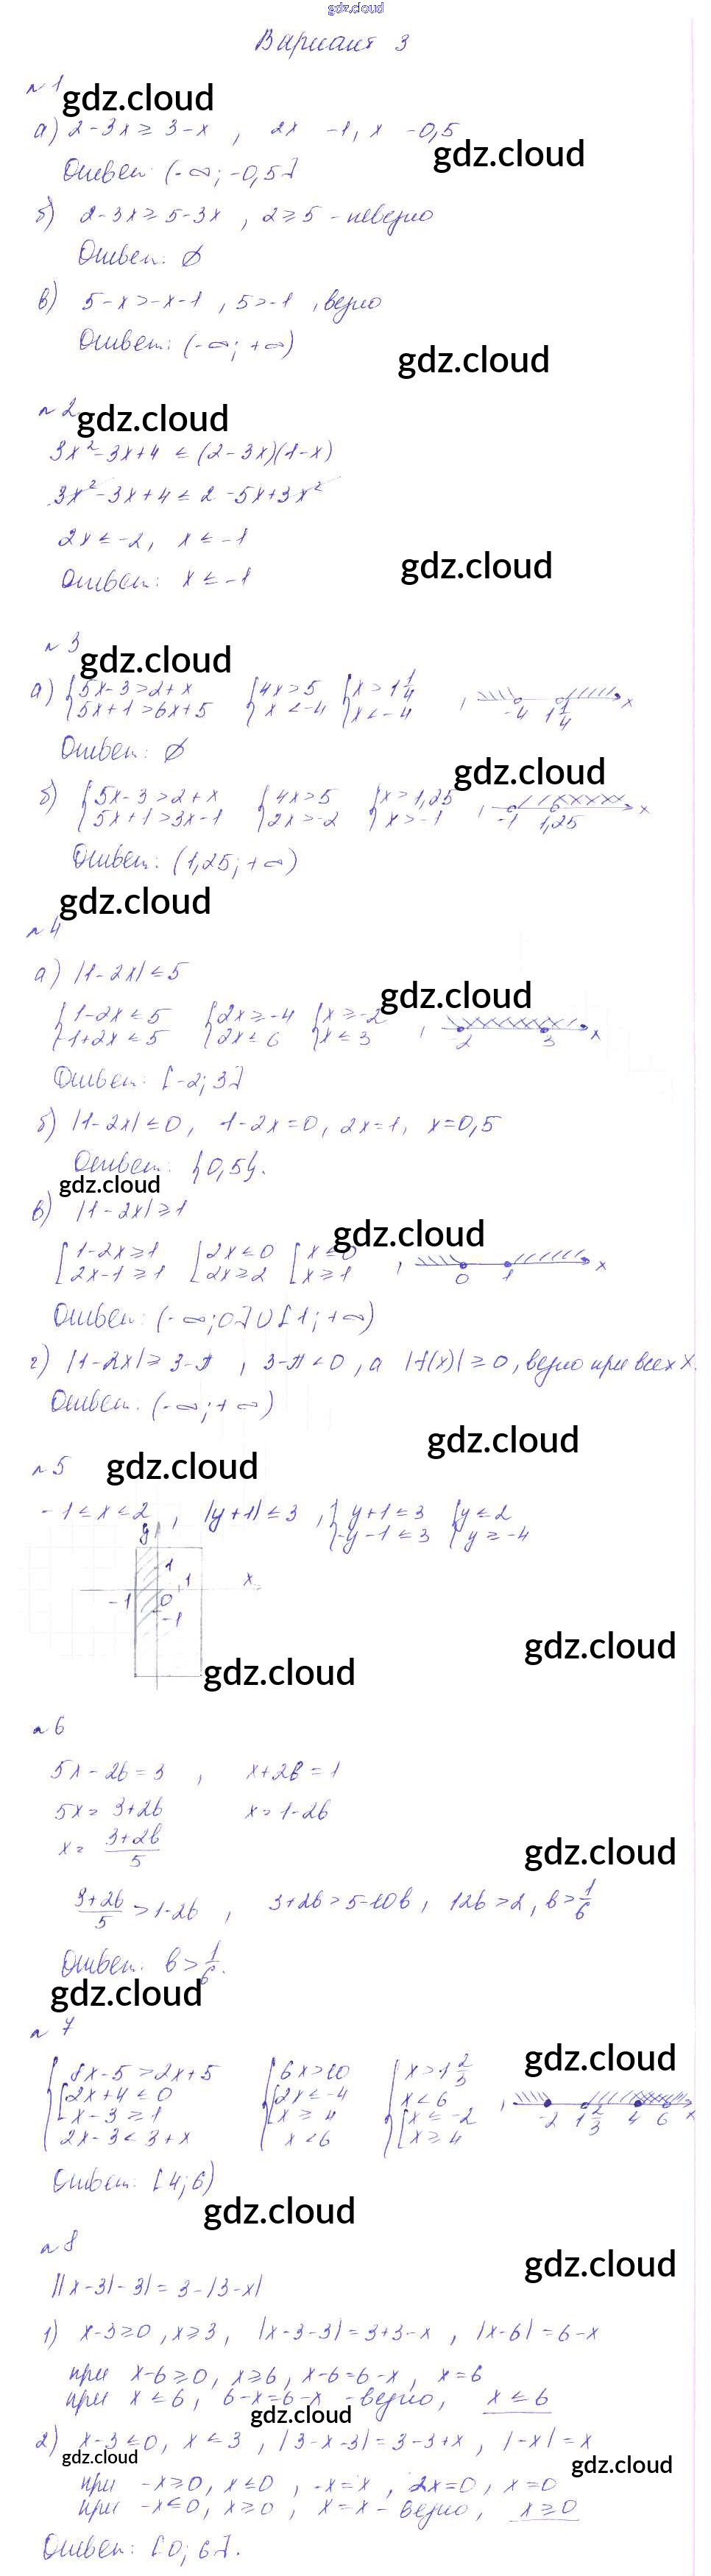 gdz.cloud
Вариант 3
№ 1
gdz.cloud
а) 2-3x ≥ 3-x , 2x -1, x -0,5
gdz.cloud
Ответ: (-∞; -0,5]
б) 2-3x ≥ 5-3x , 2 ≥ 5 - неверно
Ответ: ∅
в) 5-x > -x-1 , 5 > -1 , верно
Ответ: (-∞; +∞)
gdz.cloud
№ 2
gdz.cloud
3x²-3x+4 ≤ (2-3x)(1-x)
3x²-3x+4 ≤ 2-5x+3x²
2x ≤ -2, x ≤ -1
gdz.cloud
Ответ: x ≤ -1
№ 3
gdz.cloud
а) { 5x-3 > 2+x { 4x > 5 { x > 1 1/4
5x+1 > 6x+5 x < -4 x < -4 , -4 1 1/4 x
Ответ: ∅
gdz.cloud
б) { 5x-3 > 2+x { 4x > 5 { x > 1,25
5x+1 > 3x-1 2x > -2 x > -1 , -1 1,25 x
Ответ: (1,25; +∞)
gdz.cloud
№ 4
а) |1-2x| ≤ 5
gdz.cloud
{ 1-2x ≤ 5 { 2x ≥ -4 { x ≥ -2
-1+2x ≤ 5 2x ≤ 6 x ≤ 3 , -2 3 x
Ответ: [-2; 3]
б) |1-2x| ≤ 0, 1-2x=0, 2x=1, x=0,5
Ответ: {0,5}.
gdz.cloud
в) |1-2x| ≥ 1
gdz.cloud
[ 1-2x ≥ 1 [ 2x ≤ 0 [ x ≤ 0
2x-1 ≥ 1 2x ≥ 2 x ≥ 1 , 0 1 x
Ответ: (-∞; 0] ∪ [1; +∞)
г) |1-2x| ≥ 3-π , 3-π < 0 , а |f(x)| ≥ 0, верно при всех x.
Ответ: (-∞; +∞)
gdz.cloud
№ 5
gdz.cloud
-1 ≤ x ≤ 2 , |y+1| ≤ 3 , { y+1 ≤ 3 { y ≤ 2
-y-1 ≤ 3 y ≥ -4
y
1
1 x
-1 0
-1
gdz.cloud
gdz.cloud
№ 6
5x-2b=3 , x+2b=1
5x = 3+2b x = 1-2b
x = (3+2b)/5
gdz.cloud
(3+2b)/5 > 1-2b , 3+2b > 5-10b , 12b > 2 , b > 1/6
Ответ: b > 1/6.
gdz.cloud
№ 7
gdz.cloud
{ 8x-5 > 2x+5 { 6x > 10 { x > 1 2/3
[ 2x+4 ≤ 0 [ 2x ≤ -4 x < 6
x-3 ≥ 1 x ≥ 4 [ x ≤ -2
2x-3 < 3+x x < 6 x ≥ 4 , -2 1 2/3 4 6 x
Ответ: [4; 6)
gdz.cloud
№ 8
gdz.cloud
||x-3|-3| = 3-|3-x|
1) x-3 ≥ 0, x ≥ 3, |x-3-3| = 3+3-x , |x-6| = 6-x
при x-6 ≥ 0, x ≥ 6, x-6=6-x, x=6
при x ≤ 6, 6-x=6-x - верно, x ≤ 6
gdz.cloud
2) x-3 ≤ 0, x ≤ 3 , |3-x-3| = 3-3+x , |-x| = x
gdz.cloud
gdz.cloud
при -x ≥ 0, x ≤ 0 , -x=x , 2x=0, x=0
при -x ≤ 0, x ≥ 0 , x=x - верно, x ≥ 0
Ответ: [0; 6].